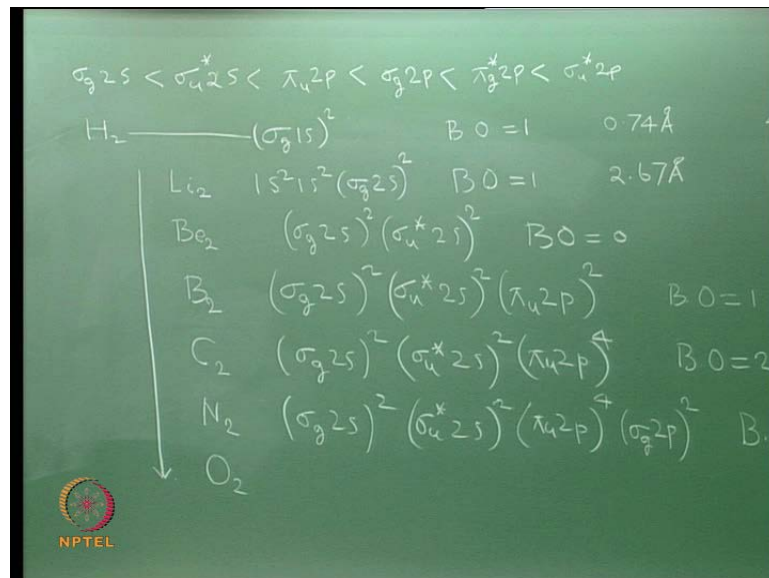 σg2s < σu*2s < πu2p < σg2p < πg*2p < σu*2p
H₂ ——— (σg1s)² BO = 1 0.74Å
Li₂ 1s²1s²(σg2s)² BO = 1 2.67Å
Be₂ (σg2s)²(σu*2s)² BO = 0
B₂ (σg2s)²(σu*2s)²(πu2p)² BO = 1
C₂ (σg2s)²(σu*2s)²(πu2p)⁴ BO = 2
N₂ (σg2s)²(σu*2s)²(πu2p)⁴(σg2p)² B.
O₂
NPTEL